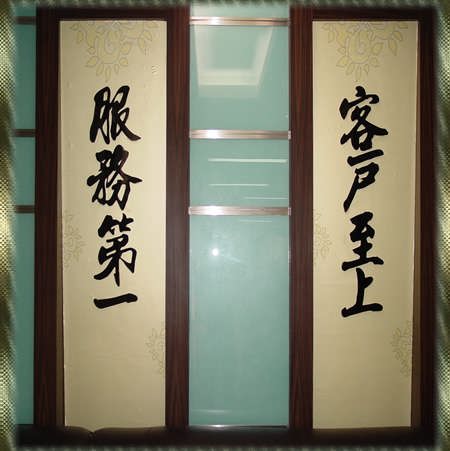 客戶至上
服務第一